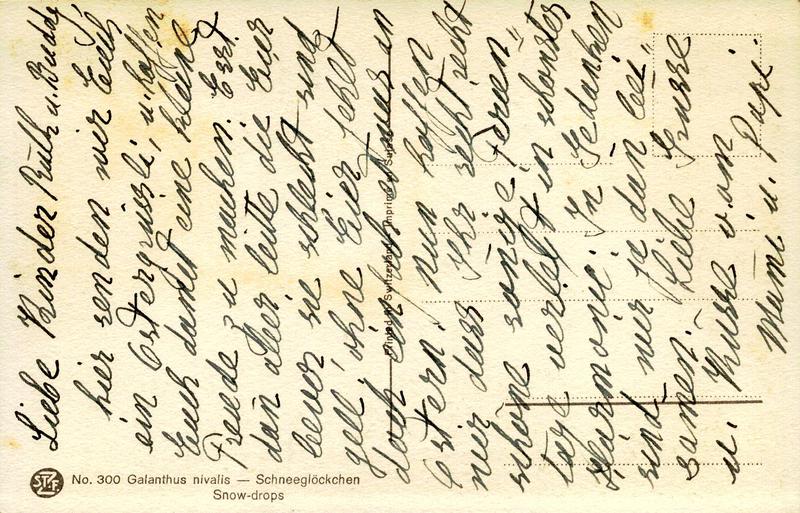 Liebe Kinder Ruth u. Buddi
hier senden wir Euch
ein Ostergrüssli, u. hoffen
Euch damit eine kleine
Freude zu machen. Esst
dan aber bitte die Eier
bevor sie schlecht sind
gell, ohne Eier fehlt
doch einfach etwas an
Ostern. Nun hoffen
wir dass Ihr recht recht
schöne sonige Ferien"
tage verlebt in schönster
Harmonie. In Gedanken
sind wir ja dan bei"
samen. Liebe Grüsse
u. Küsse v. om
Mami u. Papi.
Printed in Switzerland Imprimé en Suisse
STZF
No. 300 Galanthus nivalis — Schneeglöckchen
Snow-drops